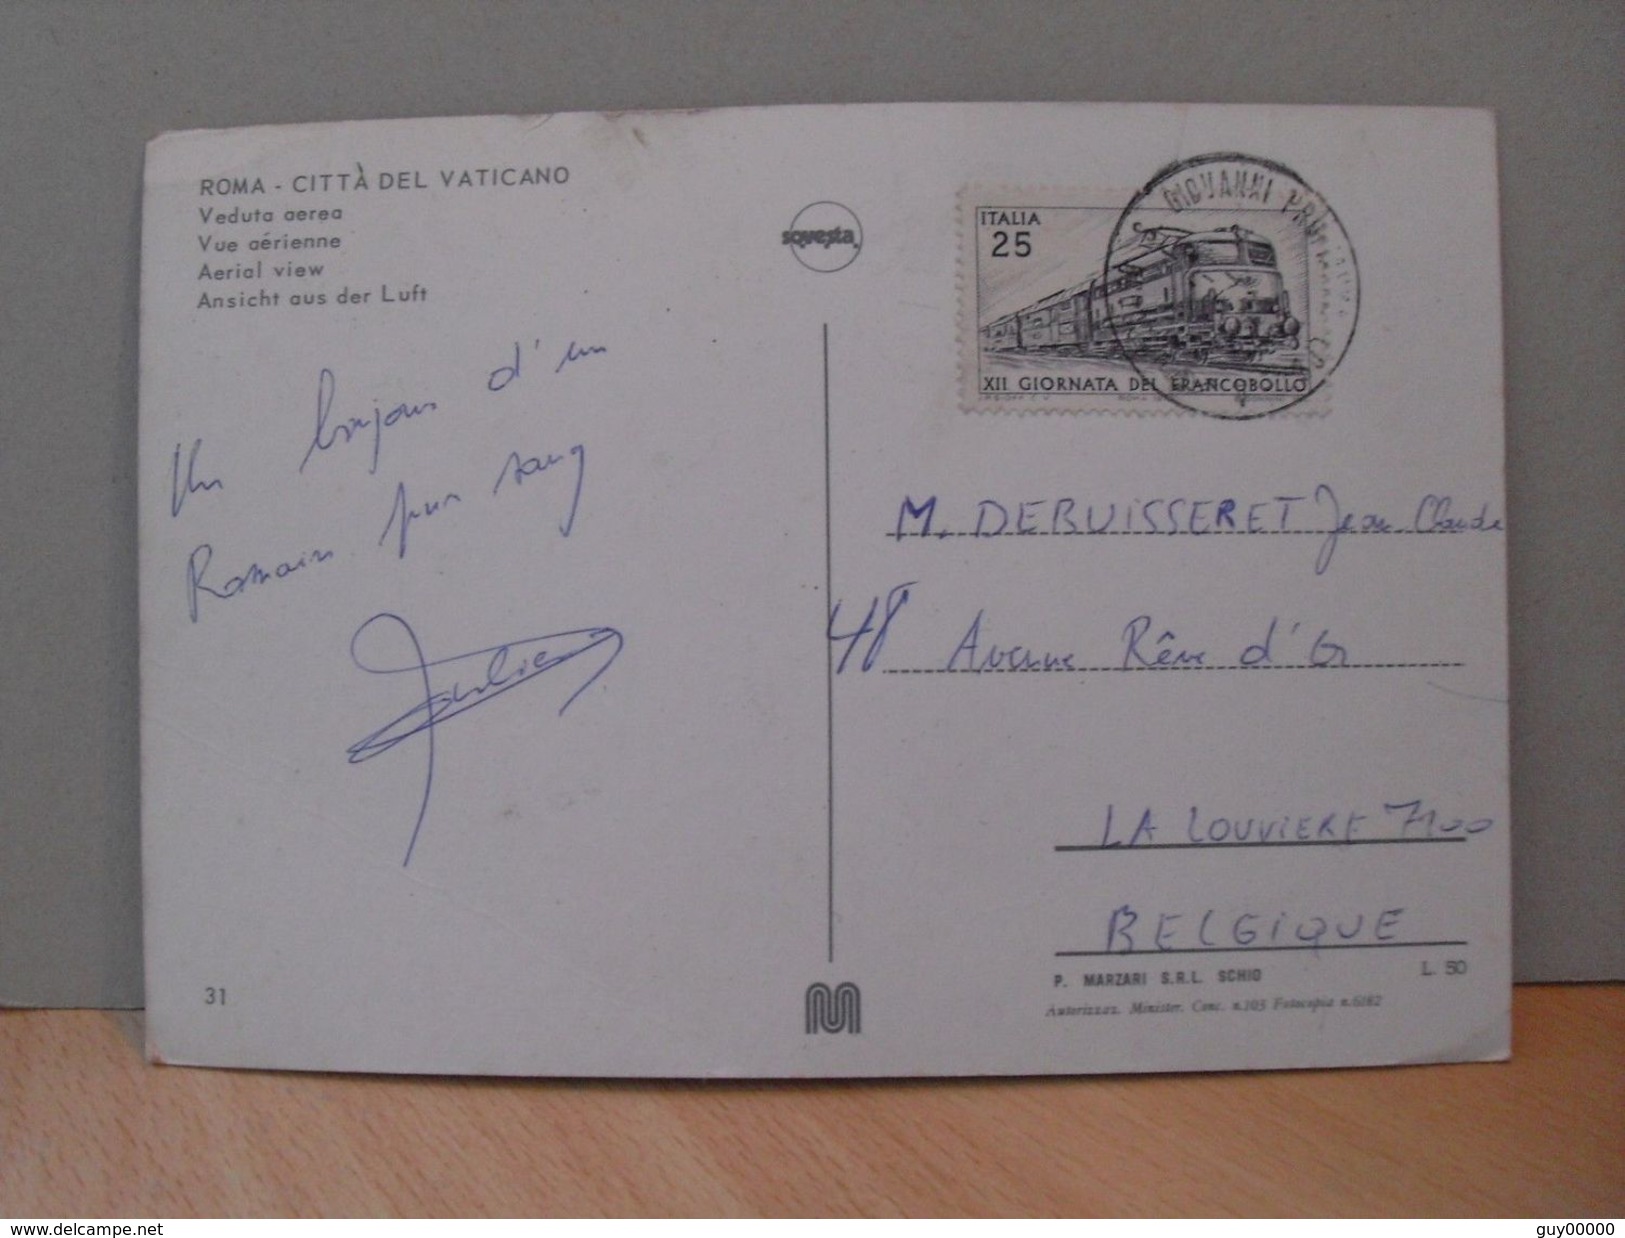 ROMA - CITTÀ DEL VATICANO
Veduta aerea
Vue aérienne
Aerial view
Ansicht aus der Luft
sovesta
ITALIA
25
XII GIORNATA DEL FRANCOBOLLO
GIOVANNI
Un bonjour d'un
Romain pur sang
M. DEBUISSERET Jean Claude
48 Avenue Rêve d'Or
LA LOUVIERE 7100
BELGIQUE
P. MARZARI S.R.L. SCHIO
L. 50
Autorizzaz. Minister. Conc. n.103 Fotocopia n.6182
31
delcampe.net
guy00000